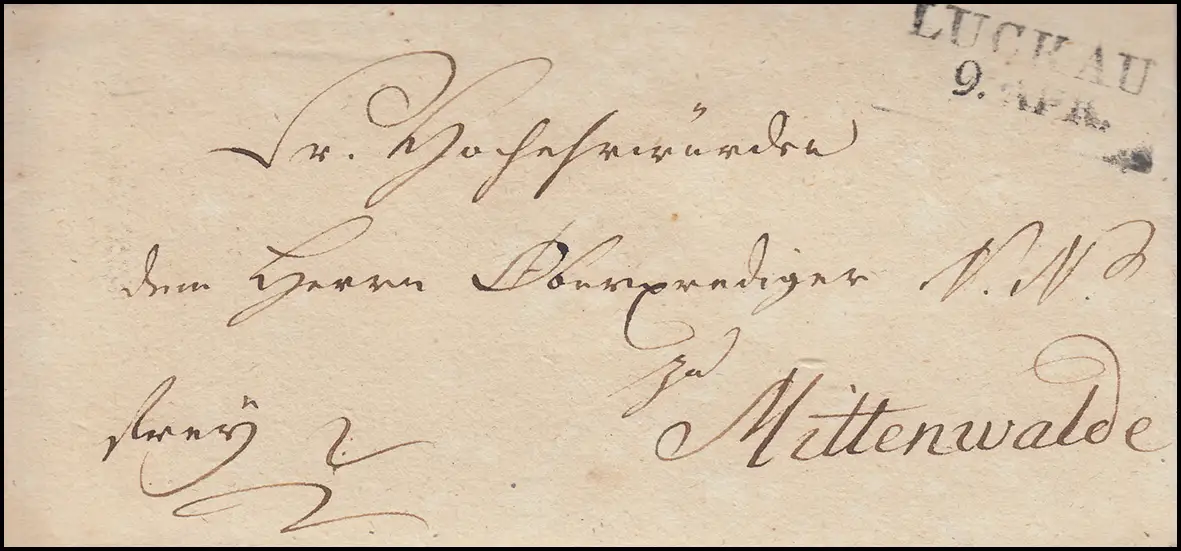 LUCKAU
9. APR.
Sr. Hochehrwürden
dem Herrn Oberprediger N. N.
zu
Mittenwalde
frey